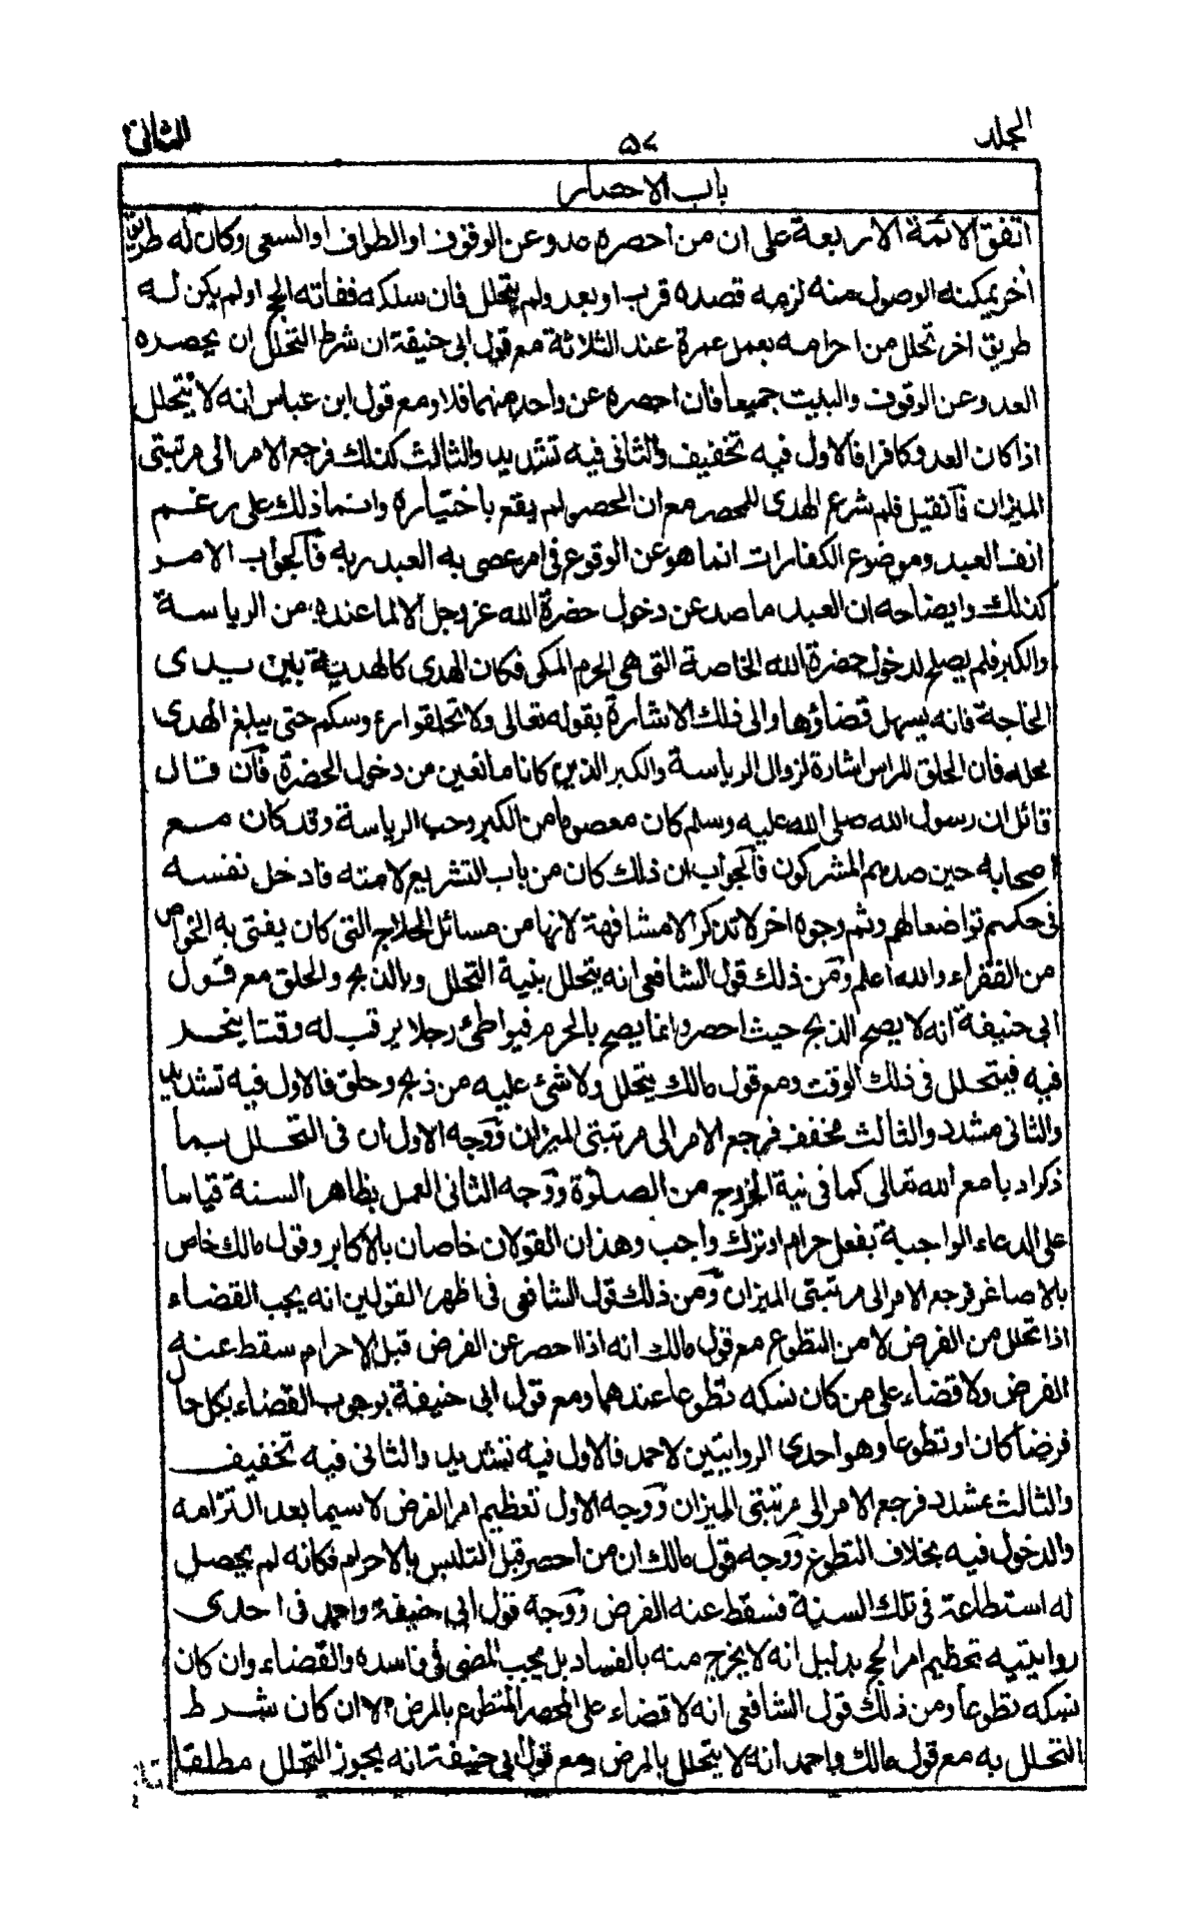 المجلد ٥٧ الثانى
باب الاحصار
اتفق الائمة الاربعة على ان من احصره عدو عن الوقوف او الطواف او السعى وكان له طريق
اخر يمكنه الوصول منه لزمه قصده قرب او بعد ولم يتحلل فان سلكه ففاته الحج او لم يكن له
طريق اخر تحلل من احرامه بعمل عمرة عند الثلاثة مع قول ابى حنيفة ان شرط التحلل ان يحصره
العدو عن الوقوف والبيت جميعا فان احصره عن واحد منهما فلا ومع قول ابن عباس انه لا يتحلل
اذا كان العدو كافرا فالاول فيه تخفيف والثانى فيه تشديد والثالث كذلك فرجع الامر الى مرتبتى
الميزان فآن قيل فلم شرع الهدى للمحصر مع ان الحصر لم يقع باختياره وانما ذلك على رغم
انف العبد وموضوع الكفارات انما هو عن الوقوع فى امر عصى به العبد ربه فآلجواب الامر
كذلك وايضاحه ان العبد ما صد عن دخول حضرة الله عز وجل الا لما عنده من الرياسة
والكبر فلم يصلح لدخول حضرة الله الخاصة التى هى الحرم المكى فكان الهدى كالهدية بين يدى
الحاجة فانه يسهل قضاؤها والى ذلك الاشارة بقوله تعالى ولا تحلقوا رءوسكم حتى يبلغ الهدى
محله فان الحلق للراس اشارة لزوال الرياسة والكبر الذين كانا مانعين من دخول الحضرة فآن قال
قائل ان رسول الله صلى الله عليه وسلم كان معصوما من الكبر وحب الرياسة وقد كان مع
اصحابه حين صدهم المشركون فآلجواب ان ذلك كان من باب التشريع لامته فادخل نفسه
فى حكمهم تواضعا لهم وثم وجوه اخر لا تذكر الا مشافهة لانها من مسائل الحلاج التى كان يفتى به الخواص
من الفقراء والله اعلم ومن ذلك قول الشافعى انه يتحلل بنية التحلل وبالذبح والحلق مع قول
ابى حنيفة انه لا يصح الذبح حيث احصر وانما يصح بالحرم فيواطئ رجلا يرقب له وقتا ينحر
فيه فيتحلل فى ذلك الوقت ومع قول مالك يتحلل ولا شئ عليه من ذبح وحلق فالاول فيه تشديد
والثانى مشدد والثالث مخفف فرجع الامر الى مرتبتى الميزان ووجه الاول ان فى التحلل بما
ذكر ادبا مع الله تعالى كما فى نية الخروج من الصلوة ووجه الثانى العمل بظاهر السنة قياسا
على الدعاء الواجبة بفعل حرام او ترك واجب وهذان القولان خاصان بالاكابر وقول مالك خاص
بالاصاغر فرجع الامر الى مرتبتى الميزان ومن ذلك قول الشافعى فى اظهر القولين انه يجب القضاء
اذا تحلل من الفرض لا من التطوع مع قول مالك انه اذا احصر عن الفرض قبل الاحرام سقط عنه
الفرض ولا قضاء على من كان نسكه تطوعا عندهما ومع قول ابى حنيفة بوجوب القضاء بكل حال
فرضا كان او تطوعا وهو احدى الروايتين لاحمد فالاول فيه تشديد والثانى فيه تخفيف
والثالث مشدد فرجع الامر الى مرتبتى الميزان ووجه الاول تعظيم امر الفرض لا سيما بعد التزامه
والدخول فيه بخلاف التطوع ووجه قول مالك ان من احصر قبل التلبس بالاحرام فكانه لم يحصل
له استطاعة فى تلك السنة فسقط عنه الفرض ووجه قول ابى حنيفة واحمد فى احدى
روايتيه تعظيم امر الحج بدليل انه لا يخرج منه بالفساد بل يجب المضى فى فاسده والقضاء وان كان
نسكه تطوعا ومن ذلك قول الشافعى انه لا قضاء على المحصر المتطوع بالمرض الا ان كان شرط
التحلل به مع قول مالك واحمد انه لا يتحلل بالمرض ومع قول ابى حنيفة انه يجوز التحلل مطلقا